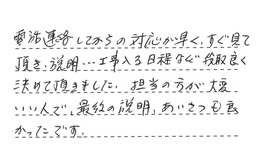 電話連絡してからの対応が早く、すぐ見て
頂き、説明…工事入る日程など段取良く
決めて頂きました。担当の方が大変
いい人で、最終の説明、あいさつも良
かったです。